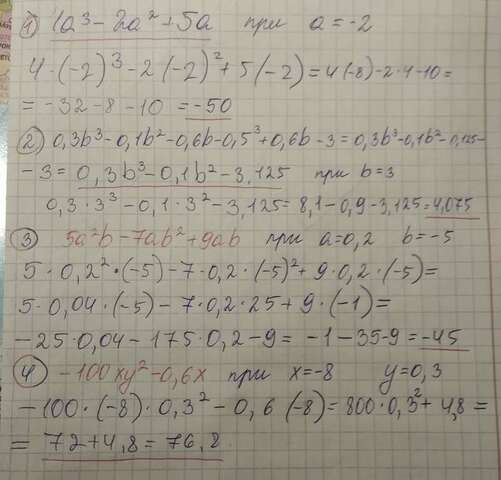 1) 1a³ - 2a² + 5a при a = -2
4 · (-2)³ - 2(-2)² + 5(-2) = 4(-8) - 2·4 - 10 =
= -32 - 8 - 10 = -50
2) 0,3b³ - 0,1b² - 0,6b - 0,5³ + 0,6b - 3 = 0,3b³ - 0,1b² - 0,125 -
- 3 = 0,3b³ - 0,1b² - 3,125 при b = 3
0,3 · 3³ - 0,1 · 3² - 3,125 = 8,1 - 0,9 - 3,125 = 4,075
3 5a²b - 7ab² + 9ab при a = 0,2 b = -5
5 · 0,2² · (-5) - 7 · 0,2 · (-5)² + 9 · 0,2 · (-5) =
5 · 0,04 · (-5) - 7 · 0,2 · 25 + 9 · (-1) =
-25 · 0,04 - 175 · 0,2 - 9 = -1 - 35 - 9 = -45
4 -100xy² - 0,6x при x = -8 y = 0,3
-100 · (-8) · 0,3² - 0,6 (-8) = 800 · 0,3² + 4,8 =
= 72 + 4,8 = 76,8